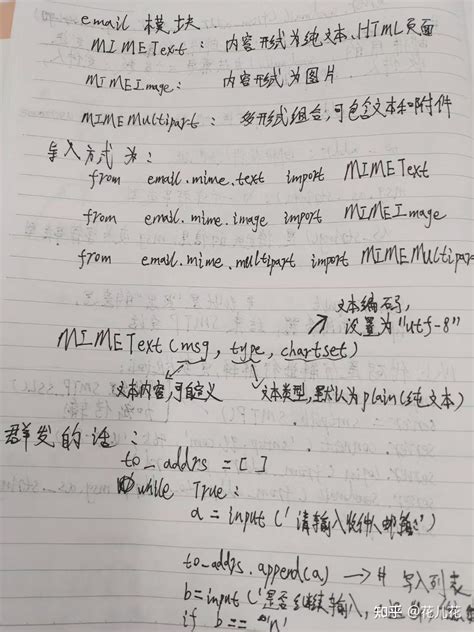 email 模块
MIMEText： 内容形式为纯文本、HTML页面
MIMEImage： 内容形式为图片
MIMEMultipart： 多形式组合,可包含文本和附件
导入方式为：
from email.mime.text import MIMEText
from email.mime.image import MIMEImage
from email.mime.multipart import MIMEMultipar
文本编码,
设置为"utf-8"
MIMEText(msg, type, chartset)
文本内容,可自定义 文本类型,默认为plain(纯文本)
群发的话：
to_addrs = [ ]
while True：
a = input('请输入收件人邮箱:')
to_addrs.append(a) → # 写入列表
b=input('是否继续输入,
if b == 'n'
知乎 @花儿花